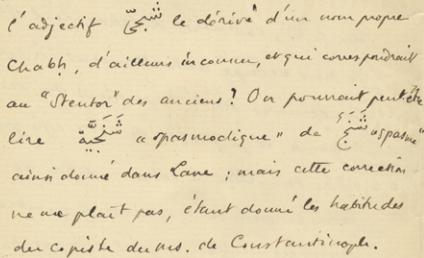 l'adjectif شَبَحِيّ le dérivé d'un nom propre
Chabḥ, d'ailleurs inconnu, et qui correspondrait
au "Stentor" des anciens? On pourrait peut-être
lire شَنَجِيَّة "spasmodique" de شَنَج "spasme"
ainsi donné dans Lane; mais cette correction
ne me plaît pas, étant donné les habitudes
du copiste du ms. de Constantinople.